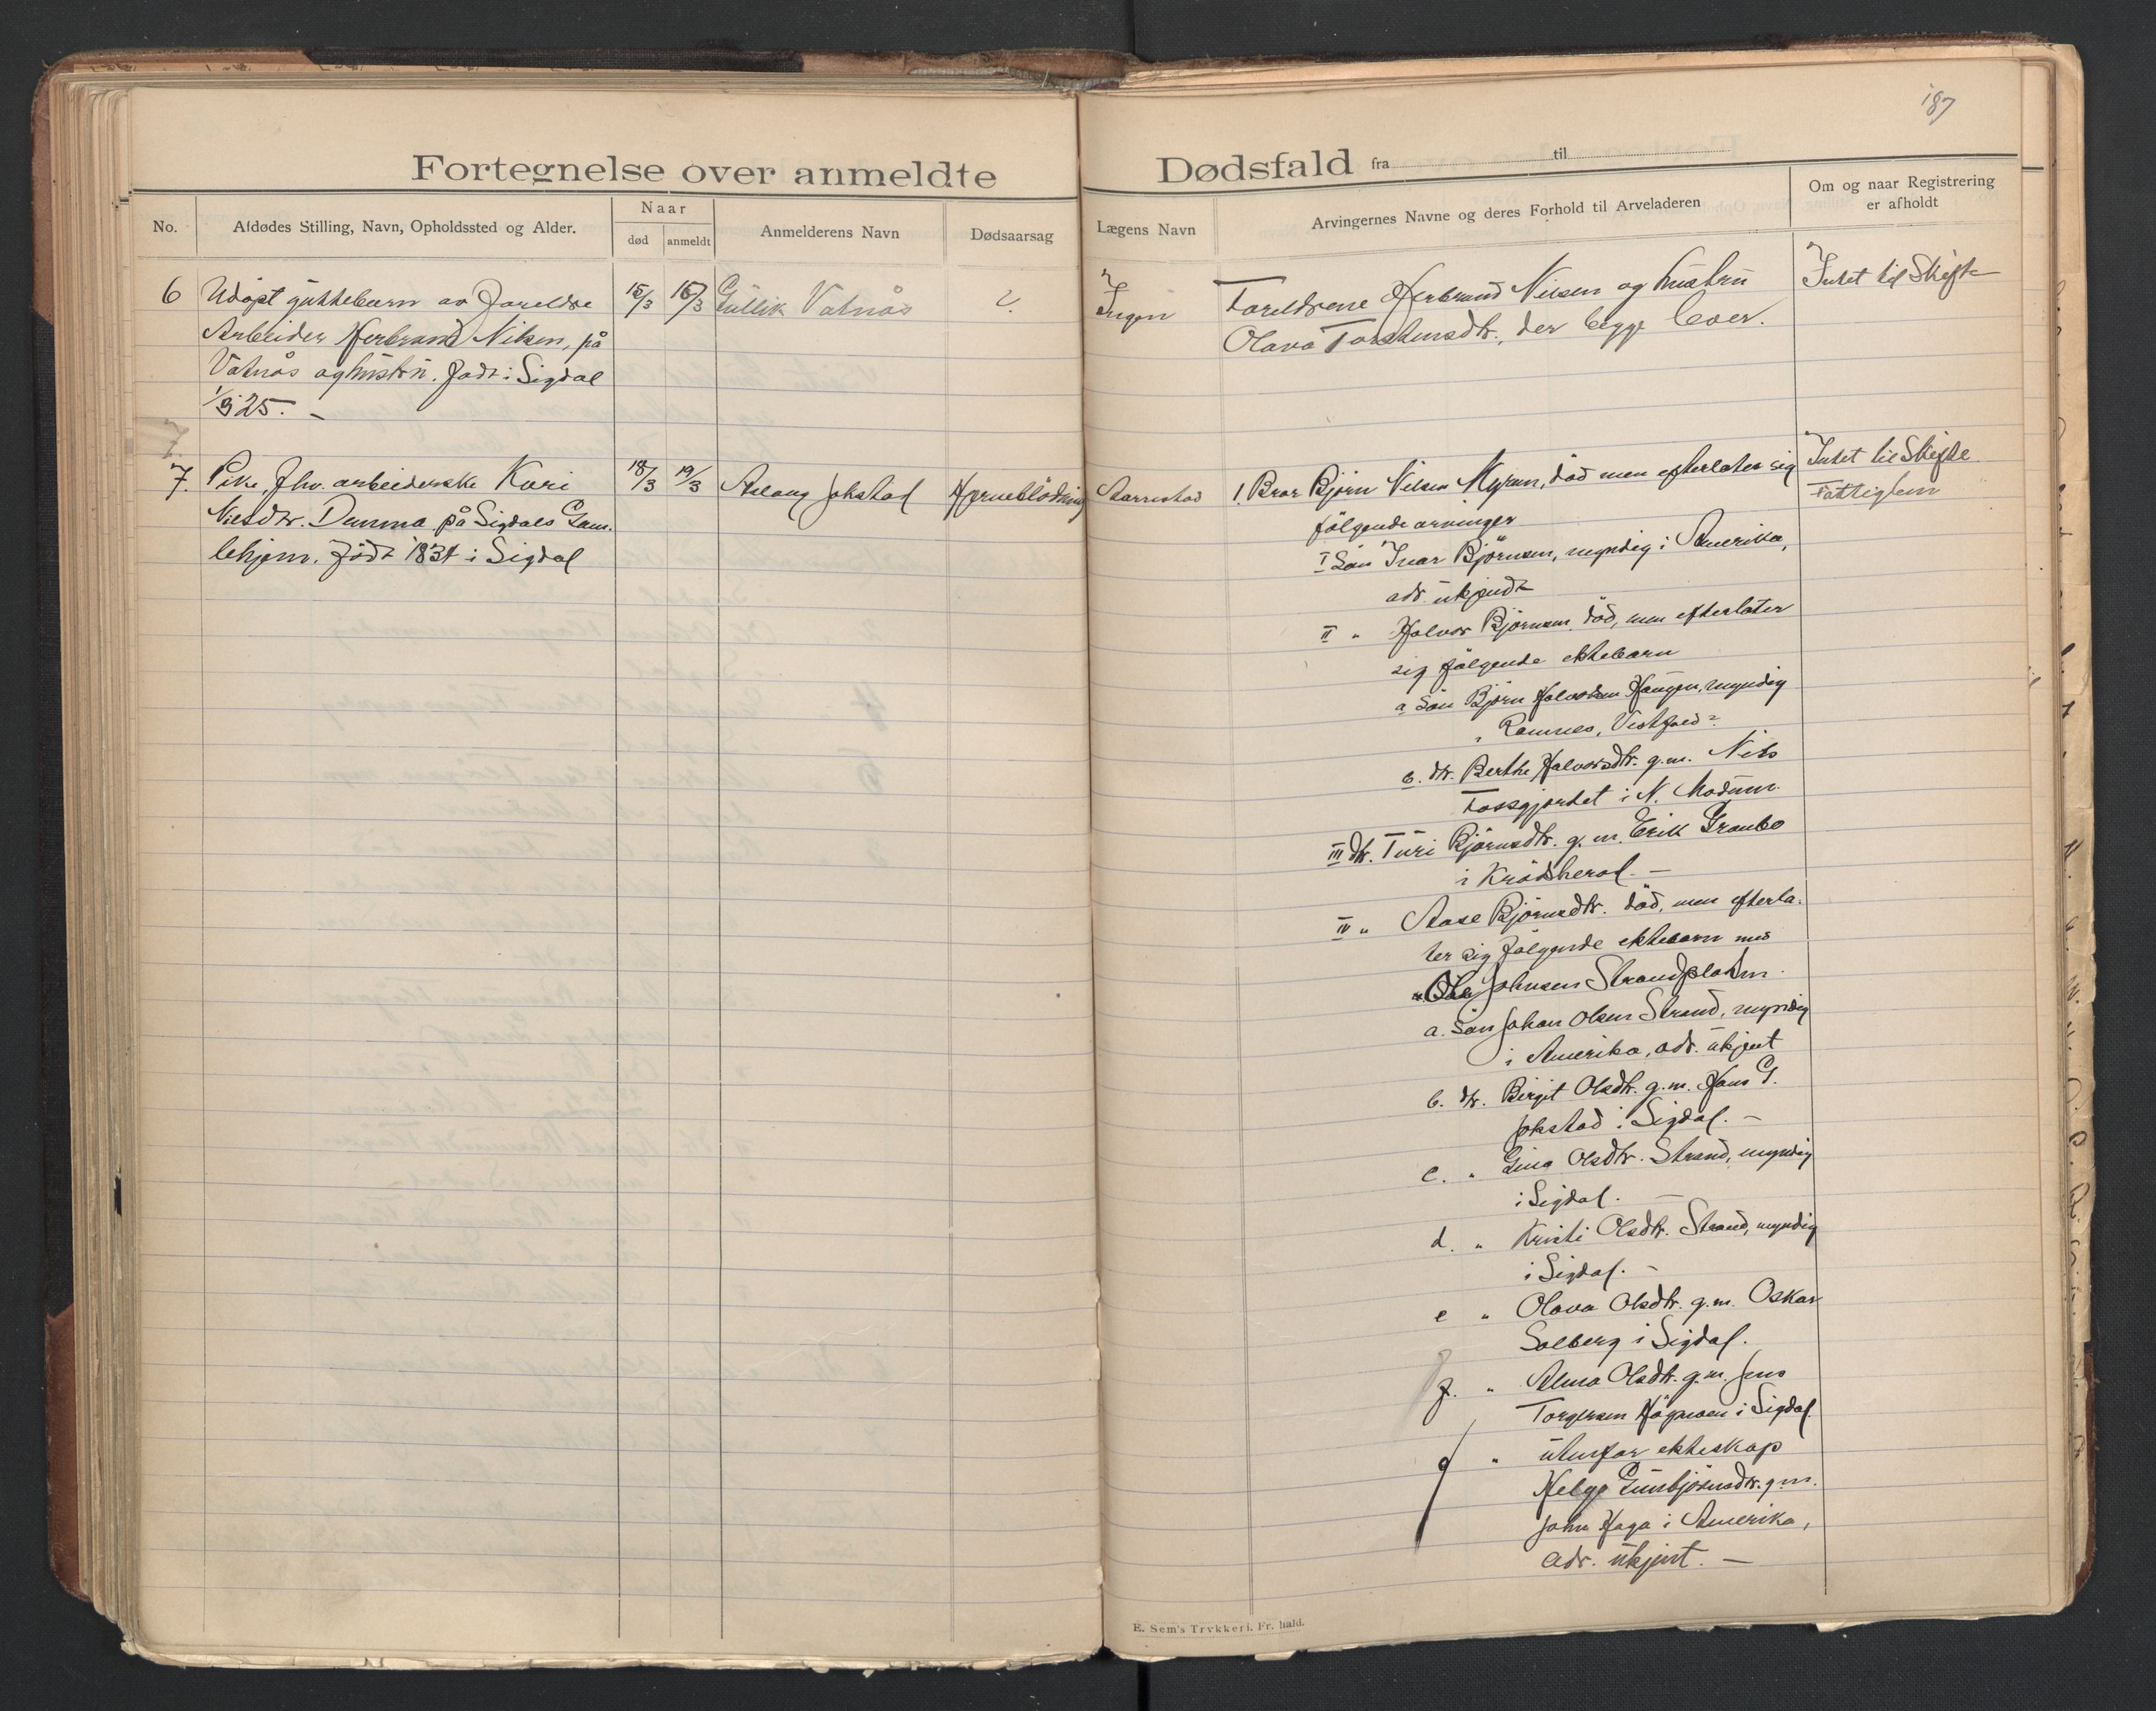 187
Fortegnelse over anmeldte Dødsfald fra til
No.
Afdødes Stilling, Navn, Opholdssted og Alder.
Naar
død
anmeldt
Anmelderens Navn
Dødsaarsag
Lægens Navn
Arvingernes Navne og deres Forhold til Arveladeren
Om og naar Registrering
er afholdt
6
Udøpt guttebarn av foreldre
Arbeider Herbrand Nilsen, på
Vatnås og hustru. født i Sigdal
1/3 25. –
15/3
16/3
Gullik Vatnås
?
Ingen
Foreldrene Herbrand Nilsen og hustru
Olava Torstensdtr., der begge lever.
Intet til Skifte
7.
Pike, fhv. arbeiderske Kari
Nilsdtr. Damma på Sigdals Gam-
lehjem. født 1834 i Sigdal
18/3
19/3
Aslaug Jokstad
Hjerneblödning
Aarrestad
1. Bror Björn Nilsen Myran, död men efterlater sig
fölgende arvinger
I Sön Ivar Björnsen, myndig i Amerika,
adr. ukjendt
II " Halvor Björnsen, död, men efterlater
sig fölgende ektebarn
a Sön Björn Halvorsen Haugen, myndig
i Ramnes, Vestfold?
b. dtr. Berthe Halvorsdtr. g.m. Nils
Fossgjordet i N. Modum.
III dtr. Turi Björnsdtr. g.m. Erik Granbo
i Krödsherad. –
IV " Aase Björnsdtr. död, men efterla-
ter sig fölgende ektebarn med
Ole Johnsen Strandpladsen.
a. Sön Johan Olsen Strand, myndig
i Amerika, adr. ukjent
b. dtr. Birgit Olsdtr. g.m. Hans G.
Jokstad i Sigdal. –
c. " Gina Olsdtr. Strand, myndig
i Sigdal. –
d. " Kristi Olsdtr. Strand, myndig
i Sigdal. –
e " Olava Olsdtr. g.m. Oskar
Solberg i Sigdal.
f. " Alma Olsdtr. g.m. Jens
Torgersen Högmoen i Sigdal
g " utenfor ekteskap
Helge Gunbjörnsdtr. g.m.
John Haga i Amerika,
adr. ukjent. –
Intet til Skifte
Fattiglem
E. Sem's Trykkeri. Fr. hald.